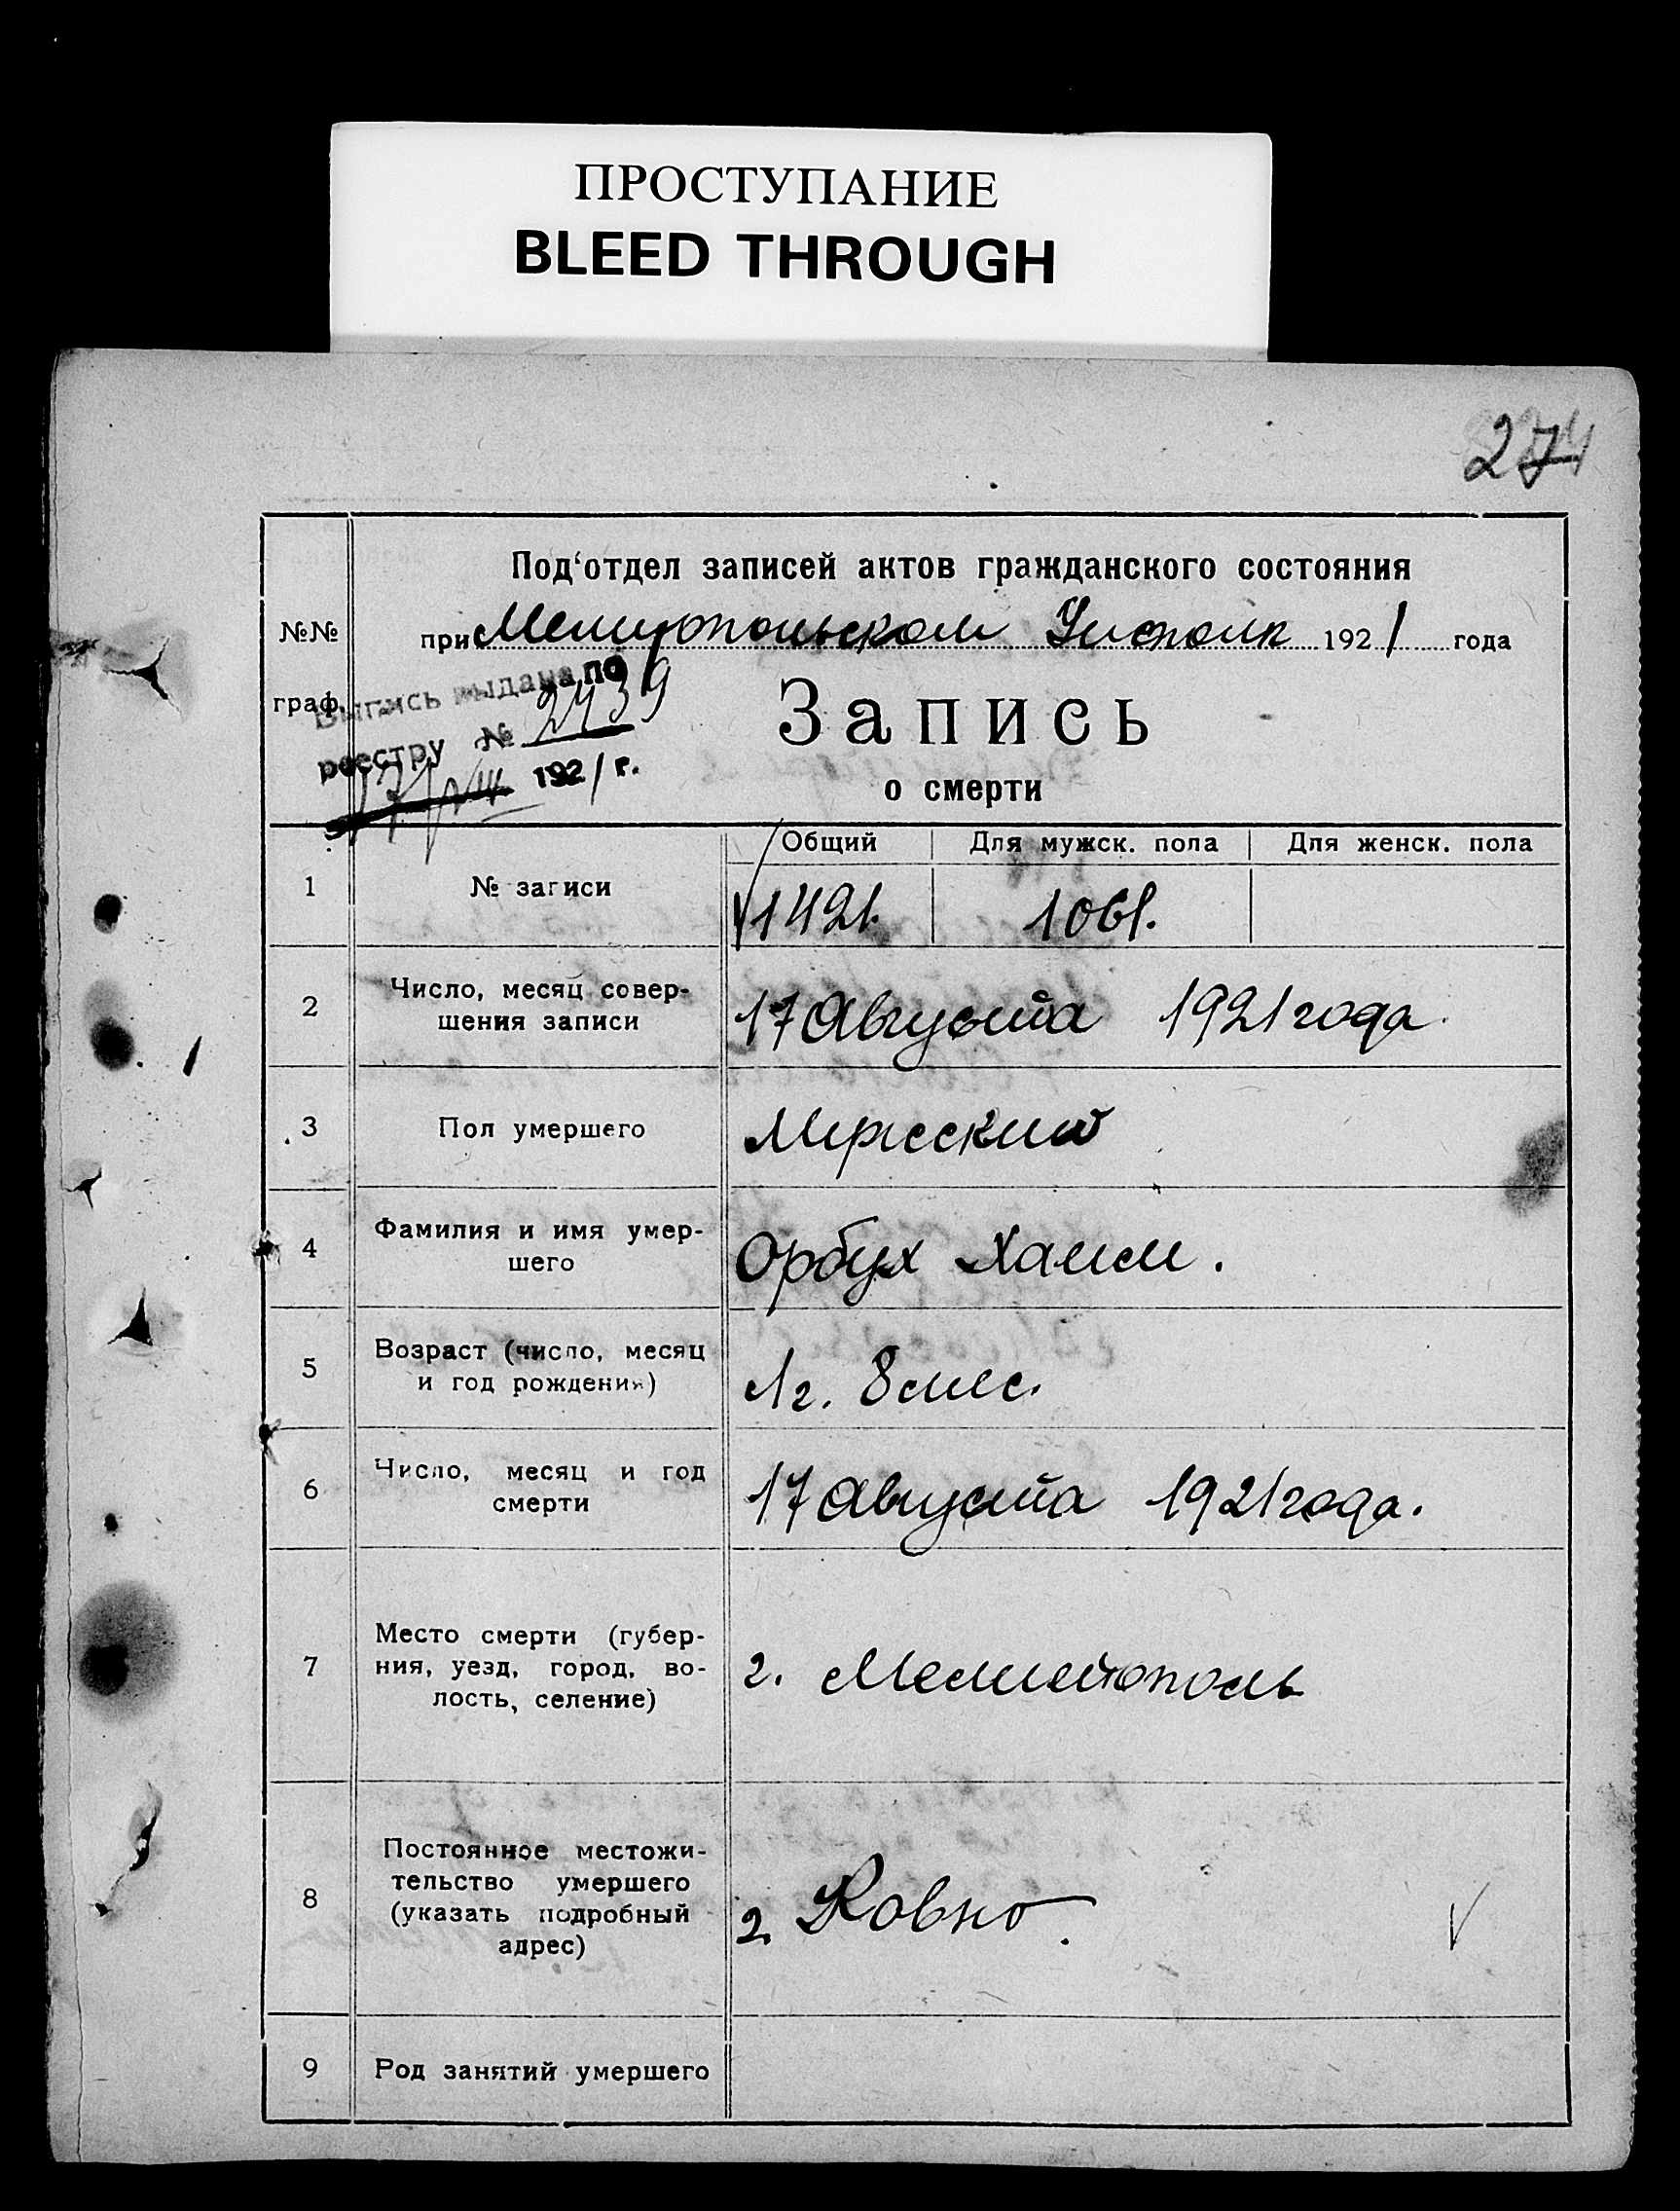 ПРОСТУПАНИЕ
BLEED THROUGH
Под‘отдел записей актов гражданского состояния
№№ при Мелитопольском Уисполк 1921 года
Выпись выдана по
граф. Запись
реестру № 2439
1921 г.
о смерти
Общий Для мужск. пола Для женск. пола
1 № записи 1421. 1061.
2 Число, месяц совер-
шения записи 17 Августа 1921 года
3 Пол умершего Мужеский
4 Фамилия и имя умер-
шего Орбух Хаим.
5 Возраст (число, месяц
и год рождения) 1 г. 8 мес.
6 Число, месяц и год
смерти 17 Августа 1921 года.
7 Место смерти (губер-
ния, уезд, город, во-
лость, селение) г. Мелитополь
8 Постоянное местожи-
тельство умершего
(указать подробный г. Ковно.
адрес)
9 Род занятий умершего